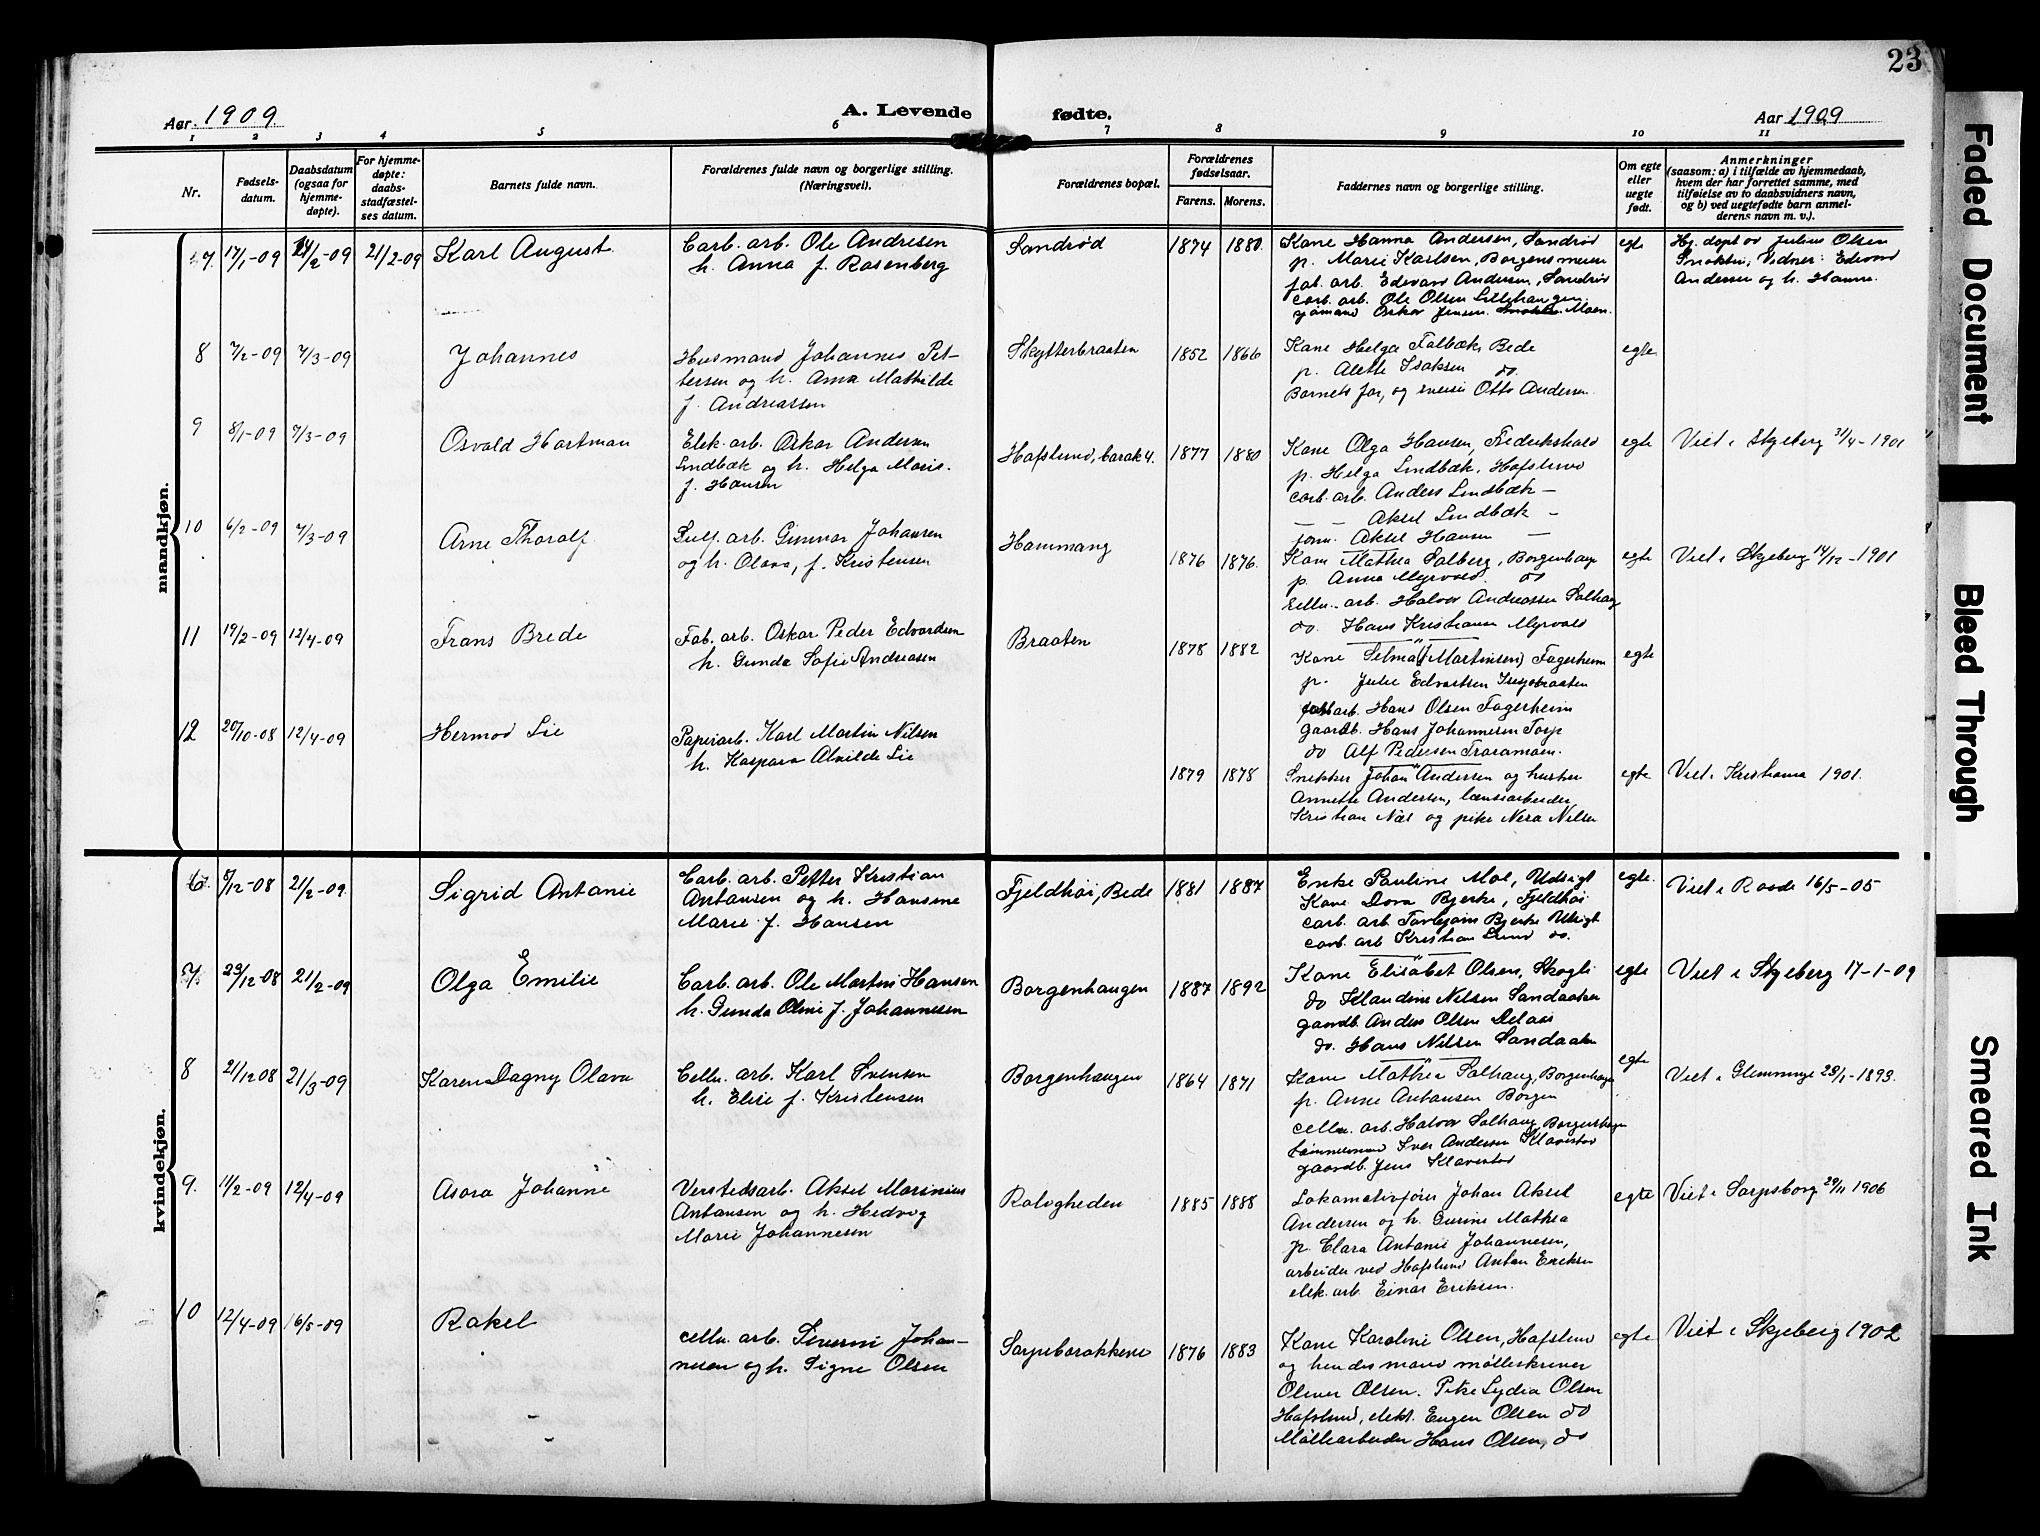 23
Aar 1909
A. Levende
fødte.
Aar 1909
1 2 3 4 5 6 7 8 9 10 11
Nr.
Fødsels-
datum.
Daabsdatum
(ogsaa for
hjemme-
døpte).
For hjemme-
døpte:
daabs-
stadfæstel-
ses datum.
Barnets fulde navn.
Forældrenes fulde navn og borgerlige stilling.
(Næringsvei).
Forældrenes bopæl.
Forældrenes
fødselsaar.
Farens. Morens.
Faddernes navn og borgerlige stilling.
Om egte
eller
uegte
født.
Anmerkninger
(saasom: a) i tilfælde av hjemmedaab,
hvem der har forrettet samme, med
tilføielse av to daabsvidners navn,
og b) ved uegtefødte barn anmel-
derens navn m. v.).
mandkjøn.
7. 17/1-09 14/2-09 21/2-09 Karl August
Carb. arb. Ole Andresen
h. Anna f. Rosenberg
Sandrød
1874 1880.
Kone Hanna Andersen, Sandrød
p. Marie Karlsen, Borgensmoen
fab. arb. Edvard Andersen, Sandrød
carb. arb. Ole Olsen Lillehaugen
Oskar Jensen. Moen.
egte
Hj. døpt av Julius Olsen
Vidner: Edvard
Andersen og h. Hanna.
8 7/2-09 7/3-09 Johannes
Husmand Johannes Pet-
tersen og h. Anna Mathilde
f. Andreassen
Skytterbraaten
1852 1866
Kone Helga Falbæk, Bede
p. Alette Isaksen do
Barnets far, og Otto Andersen
egte
9 8/1-09 7/3-09 Osvald Hartman
Elek. arb. Oskar Andersen
Lindbæk og h. Helga Marie
f. Hansen
Hafslund, barak 4.
1877 1880
Kone Olga Hansen, Fredrikshald
p. Helga Lindbæk, Hafslund
carb. arb. Anders Lindbæk —
— — Aksel Lindbæk —
Aksel Hansen —
egte
Viet i Skjeberg 21/4-1901
10 6/2-09 7/3-09 Arne Thoralf
Sulf. arb. Gunnar Johansen
og h. Olava, f. Kristensen
Hammang
1876 1876.
Kone Mathea Solberg, Borgenhaug
p. Anna Myrvold do
cellu. arb. Halvor Andreassen Solhaug
do. Hans Kristiansen Myrvold
egte
Viet i Skjeberg 14/12-1901
11 19/2-09 12/4-09 Frans Brede
Fab. arb. Oskar Peder Edvardsen
h. Gunda Sofie Andreasen
Braaten
1878 1882
Kone Selma (Martinsen) Fagerheim
p. Julie Edvartsen
fabr arb. Hans Olsen Fagerheim
gaardb. Hans Johannesen Torp
do Alf Pedersen Traramoen.
egte
12 20/10-08 12/4-09 Hermod Lie
Papirarb. Karl Martin Nilsen
h. Kaspara Alvilde Lie
1879 1878
Snekker Johan Andersen og hustru
Annette Andersen, lænsearbeider
Kristian Næs og pike Nera Nilsen
egte
Viet i Kristiania 1901.
kvindekjøn.
6 5/12-08 21/2-09 Sigrid Antonie
Carb. arb. Petter Kristian
Antonsen og h. Hansine
Marie f. Hansen
Fjeldhøi, Bede
1881 1887
Enke Pauline Moe, Udsigt
Kone Dora Bjerke, Fjeldhøi
carb. arb. Torbjørn Bjerke Utsigt
carb. arb Kristian Lund do.
egte.
Viet i Raade 16/5-05
7 23/12-08 21/2-09 Olga Emilie
Carb. arb. Ole Martin Hansen
h. Gunda Oline f. Johannesen
Borgenhaugen
1887 1892
Kone Elisabet Olsen, Skogli
do Klandine Nilsen Sandaaker
gaardb. Anders Olsen
do. Hans Nilsen Sandaaker
egte
Viet i Skjeberg 17-1-09
8 21/12 08 21/3-09 Karen Dagny Olava
Cellu. arb. Karl Svensen
h. Elise f. Kristensen
Borgenhaugen
1864 1871
Kone Mathea Solhaug, Borgenhaugen
p. Anne Antonsen Borgen
cellu. arb. Halvor Solhaug, Borgenhaugen
tømmermand Iver Andersen Klavestad
gaardb. Jens Klavestad
egte
Viet i Glemminge 29/1-1893.
9. 11/2-09 12/4-09 Asora Johanne
Verstedsarb. Aksel Marinius
Antonsen og h. Hedvig
Marie Johannesen
Rolvgheden
1885 1888
Lokomotivfører Johan Aksel
Andersen og h. Gurine Mathea
p. Clara Antonie Johannesen,
arbeider ved Hafslund Anton Eriksen
elek. arb. Einar Eriksen.
egte
Viet i Sarpsborg 29/11 1906
10 12/4-09 16/5-09 Rakel
cellu. arb. Severin Johan-
nesen og h. Signe Olsen
Sarpsbarakkene
1876 1883
Kone Karoline Olsen, Hafslund
og hendes mand mølleskriver
Oliver Olsen. Pike Lydia Olsen
Hafslund, elekt. Eugen Olsen do
Møllearbeider Hans Olsen, do
egte
Viet i Skjeberg 1902
Faded Document
Bleed Through
Smeared Ink